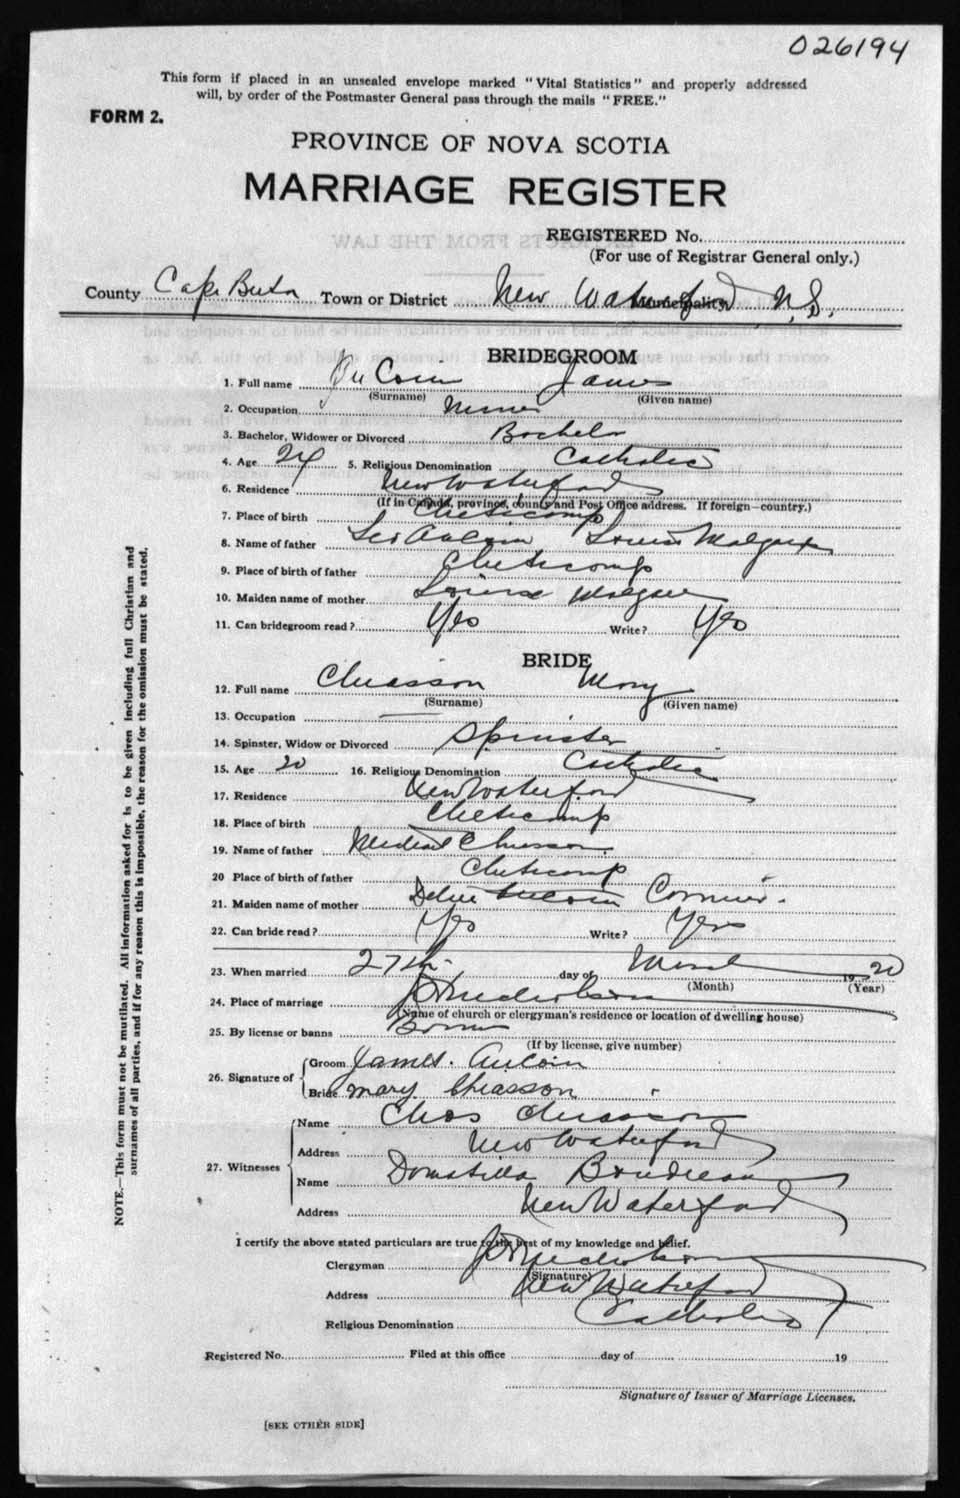 026194
This form if placed in an unsealed envelope marked "Vital Statistics" and properly addressed
will, by order of the Postmaster General pass through the mails "FREE."
FORM 2.
PROVINCE OF NOVA SCOTIA
MARRIAGE REGISTER
REGISTERED No.
(For use of Registrar General only.)
County Cape Breton Town or District New Waterford Municipality N.S.
BRIDEGROOM
1. Full name AuCoin James
(Surname) (Given name)
2. Occupation Miner
3. Bachelor, Widower or Divorced Bachelor
4. Age 24 5. Religious Denomination Catholic
6. Residence New Waterford
(If in Canada, province, county and Post Office address. If foreign—country.)
7. Place of birth Cheticamp
8. Name of father Leo Aucoin Louise
9. Place of birth of father Cheticamp
10. Maiden name of mother Louise
11. Can bridegroom read? Yes Write? Yes
BRIDE
12. Full name Chiasson Mary
(Surname) (Given name)
13. Occupation —
14. Spinster, Widow or Divorced Spinster
15. Age 20 16. Religious Denomination Catholic
17. Residence New Waterford
18. Place of birth Cheticamp
19. Name of father Chiasson
20 Place of birth of father Cheticamp
21. Maiden name of mother Aucoin Cormier.
22. Can bride read? Yes Write? Yes
23. When married 27th day of March 1920
(Month) (Year)
24. Place of marriage
(Name of church or clergyman's residence or location of dwelling house)
25. By license or banns Banns
(If by license, give number)
26. Signature of Groom James. Aucoin
Bride Mary Chiasson
27. Witnesses Name Chas Chiasson
Address New Waterford
Name Domatilla Boudreau
Address New Waterford
I certify the above stated particulars are true to the best of my knowledge and belief.
Clergyman
(Signature)
Address New Waterford
Religious Denomination Catholic
Registered No. Filed at this office day of 19
Signature of Issuer of Marriage Licenses.
[SEE OTHER SIDE]
NOTE.—This form must not be mutilated. All information asked for is to be given including full Christian and
surnames of all parties, and if for any reason this is impossible, the reason for the omission must be stated.